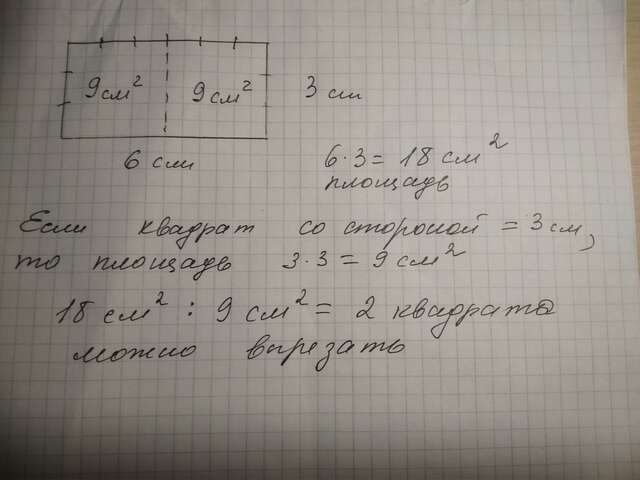 9 см² 9 см² 3 см
6 см
6·3 = 18 см²
площадь
Если квадрат со стороной = 3 см,
то площадь 3·3 = 9 см²
18 см² : 9 см² = 2 квадрата
можно вырезать